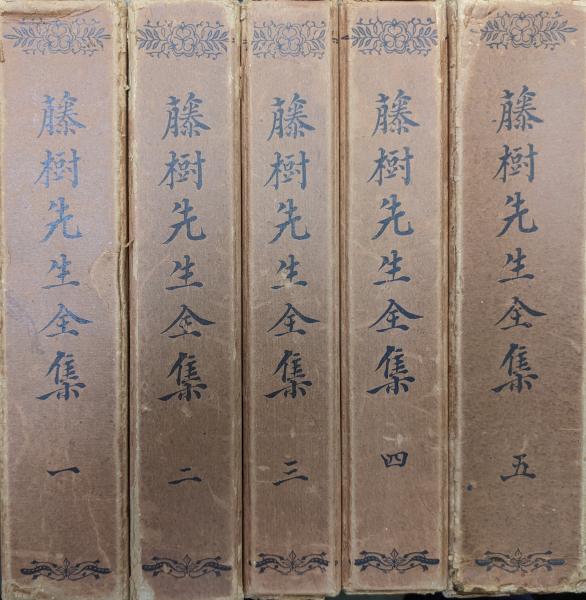 藤樹先生全集 一
藤樹先生全集 二
藤樹先生全集 三
藤樹先生全集 四
藤樹先生全集 五